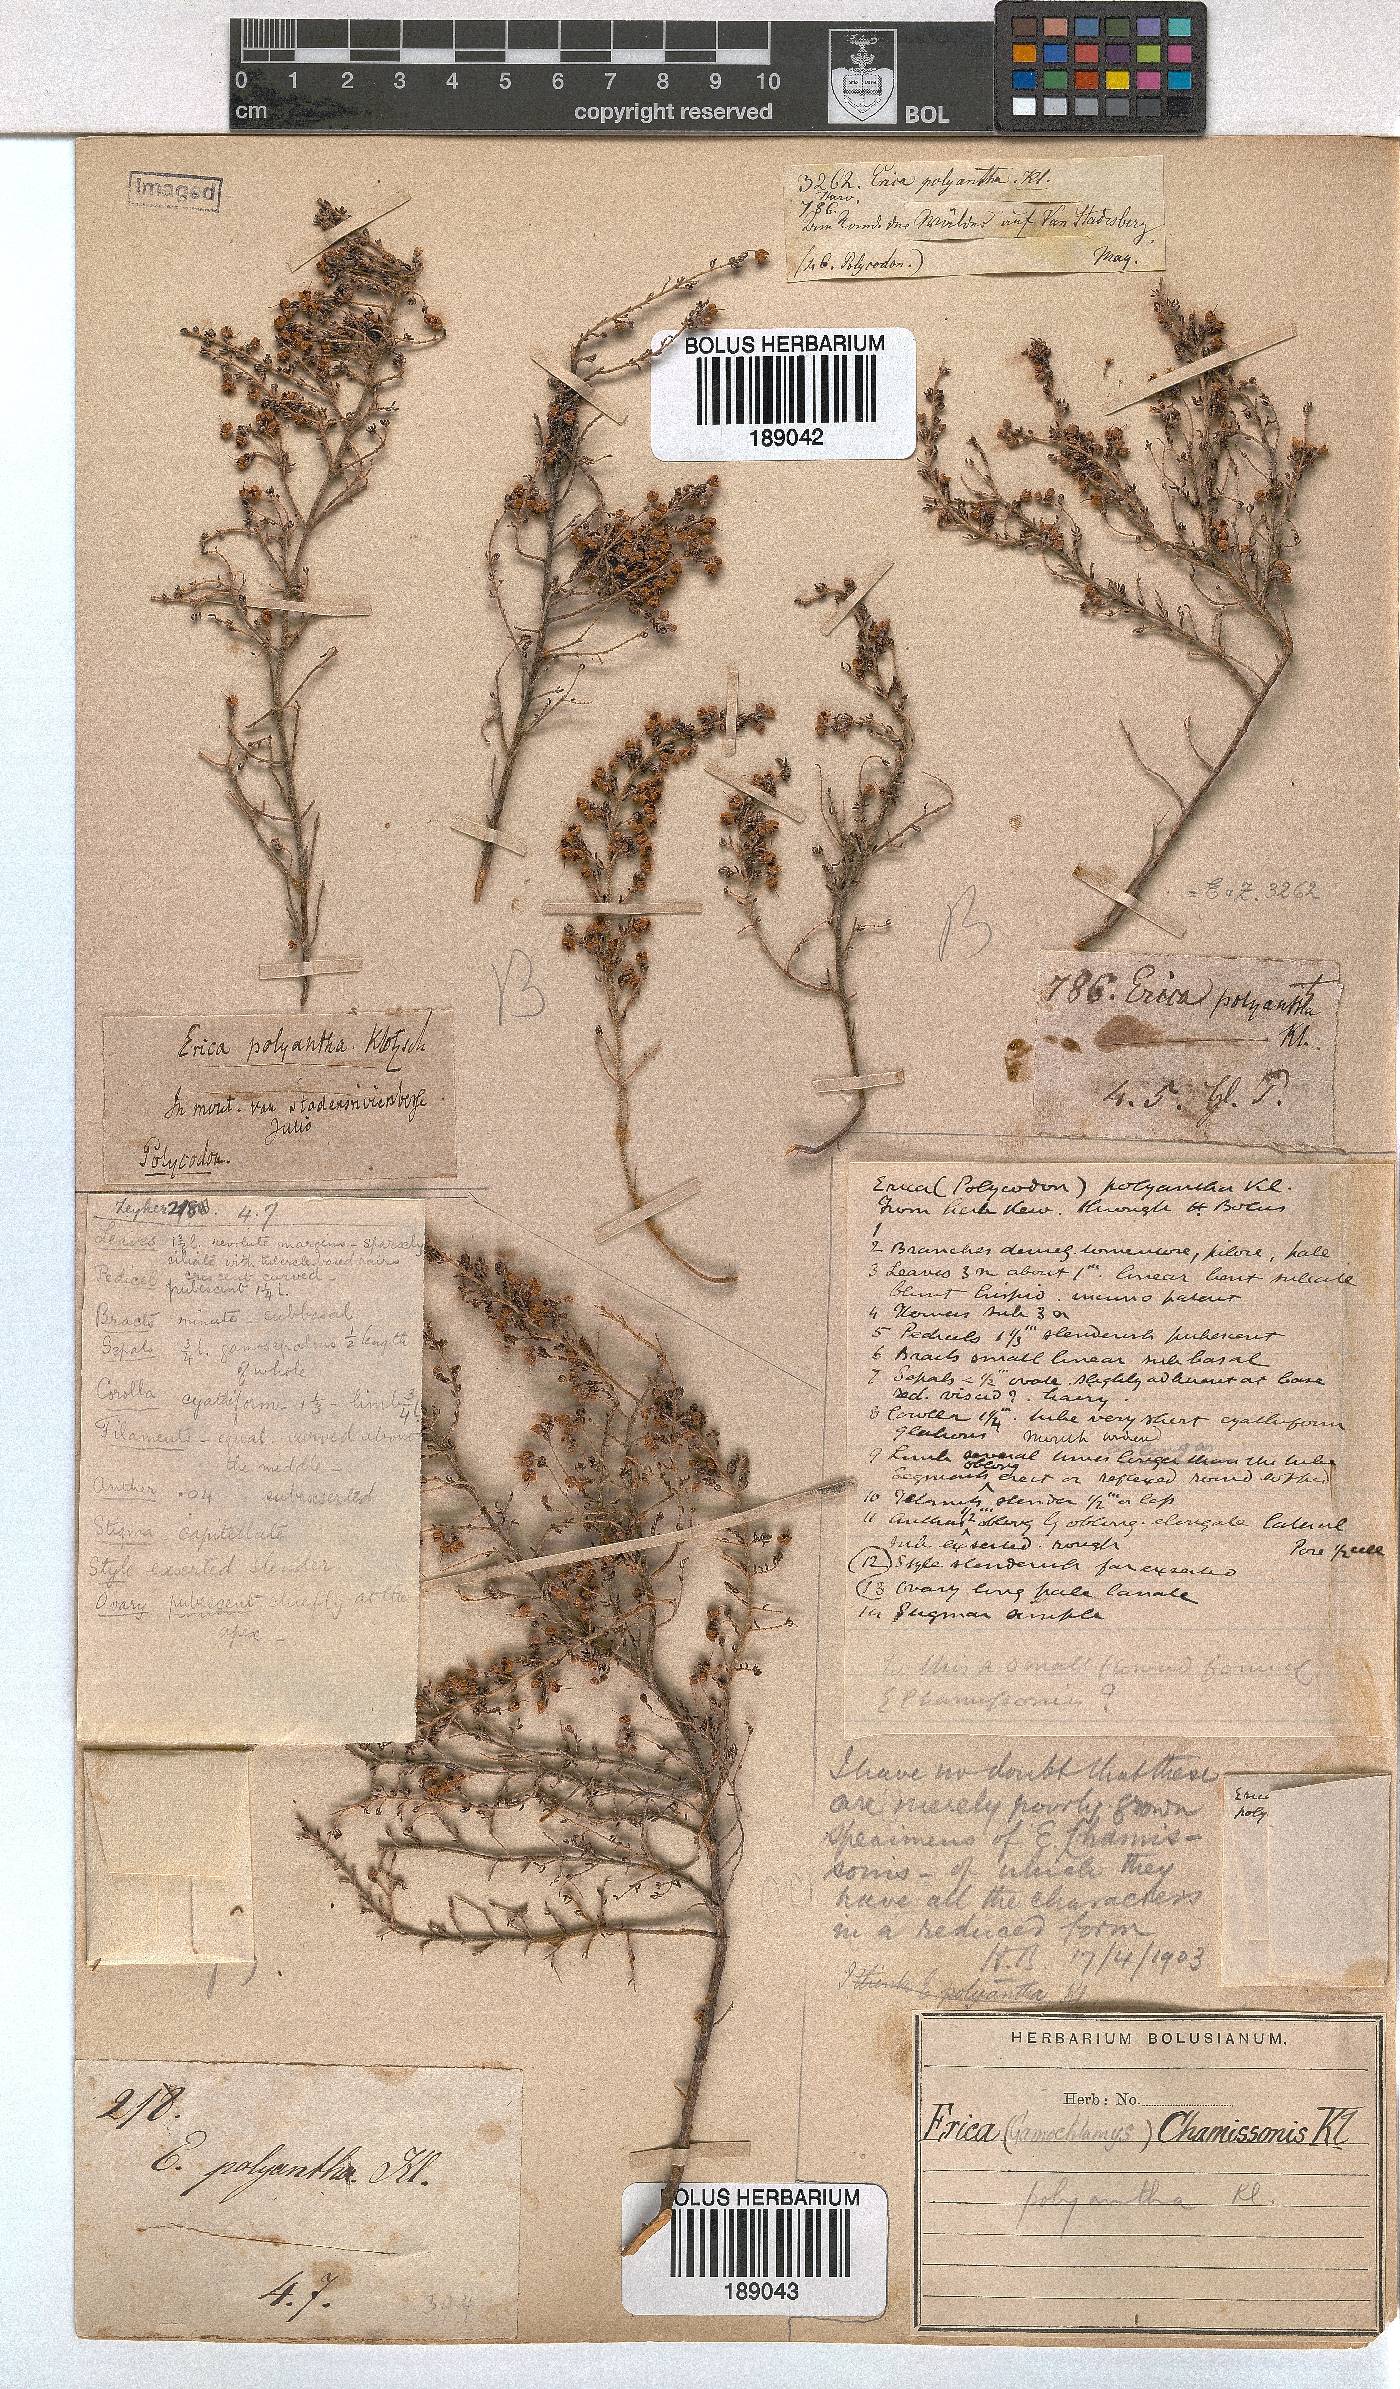 0 1 2 3 4 5 6 7 8 9 10
cm
copyright reserved
BOL
Imaged
3262. Erica polyantha. Kl.
786.
auf Van Stadesberg
(46. Polycodon.) May.
BOLUS HERBARIUM
189042
= E & Z. 3262
B
B
786. Erica polyantha
Kl.
4.5. Gl. P.
Erica polyantha. Klotzsch
In mont. van Stadensrivierberge
Julio
Polycodon.
Zeyher 218. 4.7
Leaves revolute margins - sparsely
ciliate with
Pedicel curved -
pubescent
Bracts minute subbasal
Sepals 3/4 l. gamosepalous 1/2 length
of whole
Corolla cyathiform limb 3/4
Filaments curved above
the middle -
Anther .04 subexserted
Stigma capitellate
Style exserted
Ovary pubescent at the
apex -
Erica (Polycodon) polyantha Kl.
From herb Kew. through H. Bolus
1
2 Branches tomentose, pilose, pale
3 Leaves 3 n about 1'''. linear
blunt
4 Flowers sub 3 n
5 Pedicels 1 1/3''' slenderish pubescent
6 Bracts small linear sub basal
7 Sepals = 1/2''' ovate slightly adherent at base
red. viscid? hairy.
8 Corolla 1 1/4'''. tube very short cyathiform
glabrous mouth
9 Limb several times longer than the tube
segments erect or reflexed round
10 Filaments slender 1/2''' or less
11 Anthers 1/2''' oblong elongate lateral
sub exserted. rough Pore 1/2 cell
12 Style slenderish far exserted
13 Ovary long pale lanate
14 Stigma simple
Is this a small flowered form of
E Chamissonis?
I have no doubt that these
are merely poorly grown
specimens of E. Chamis-
sonis - of which they
have all the characters
in a reduced form
H.B. 17/4/1903
I think E polyantha Kl
Erica
poly
HERBARIUM BOLUSIANUM.
Herb: No.
Erica (Gamochlamys) Chamissonis Kl
polyantha Kl.
218.
E. polyantha Kl.
4.7.
BOLUS HERBARIUM
189043